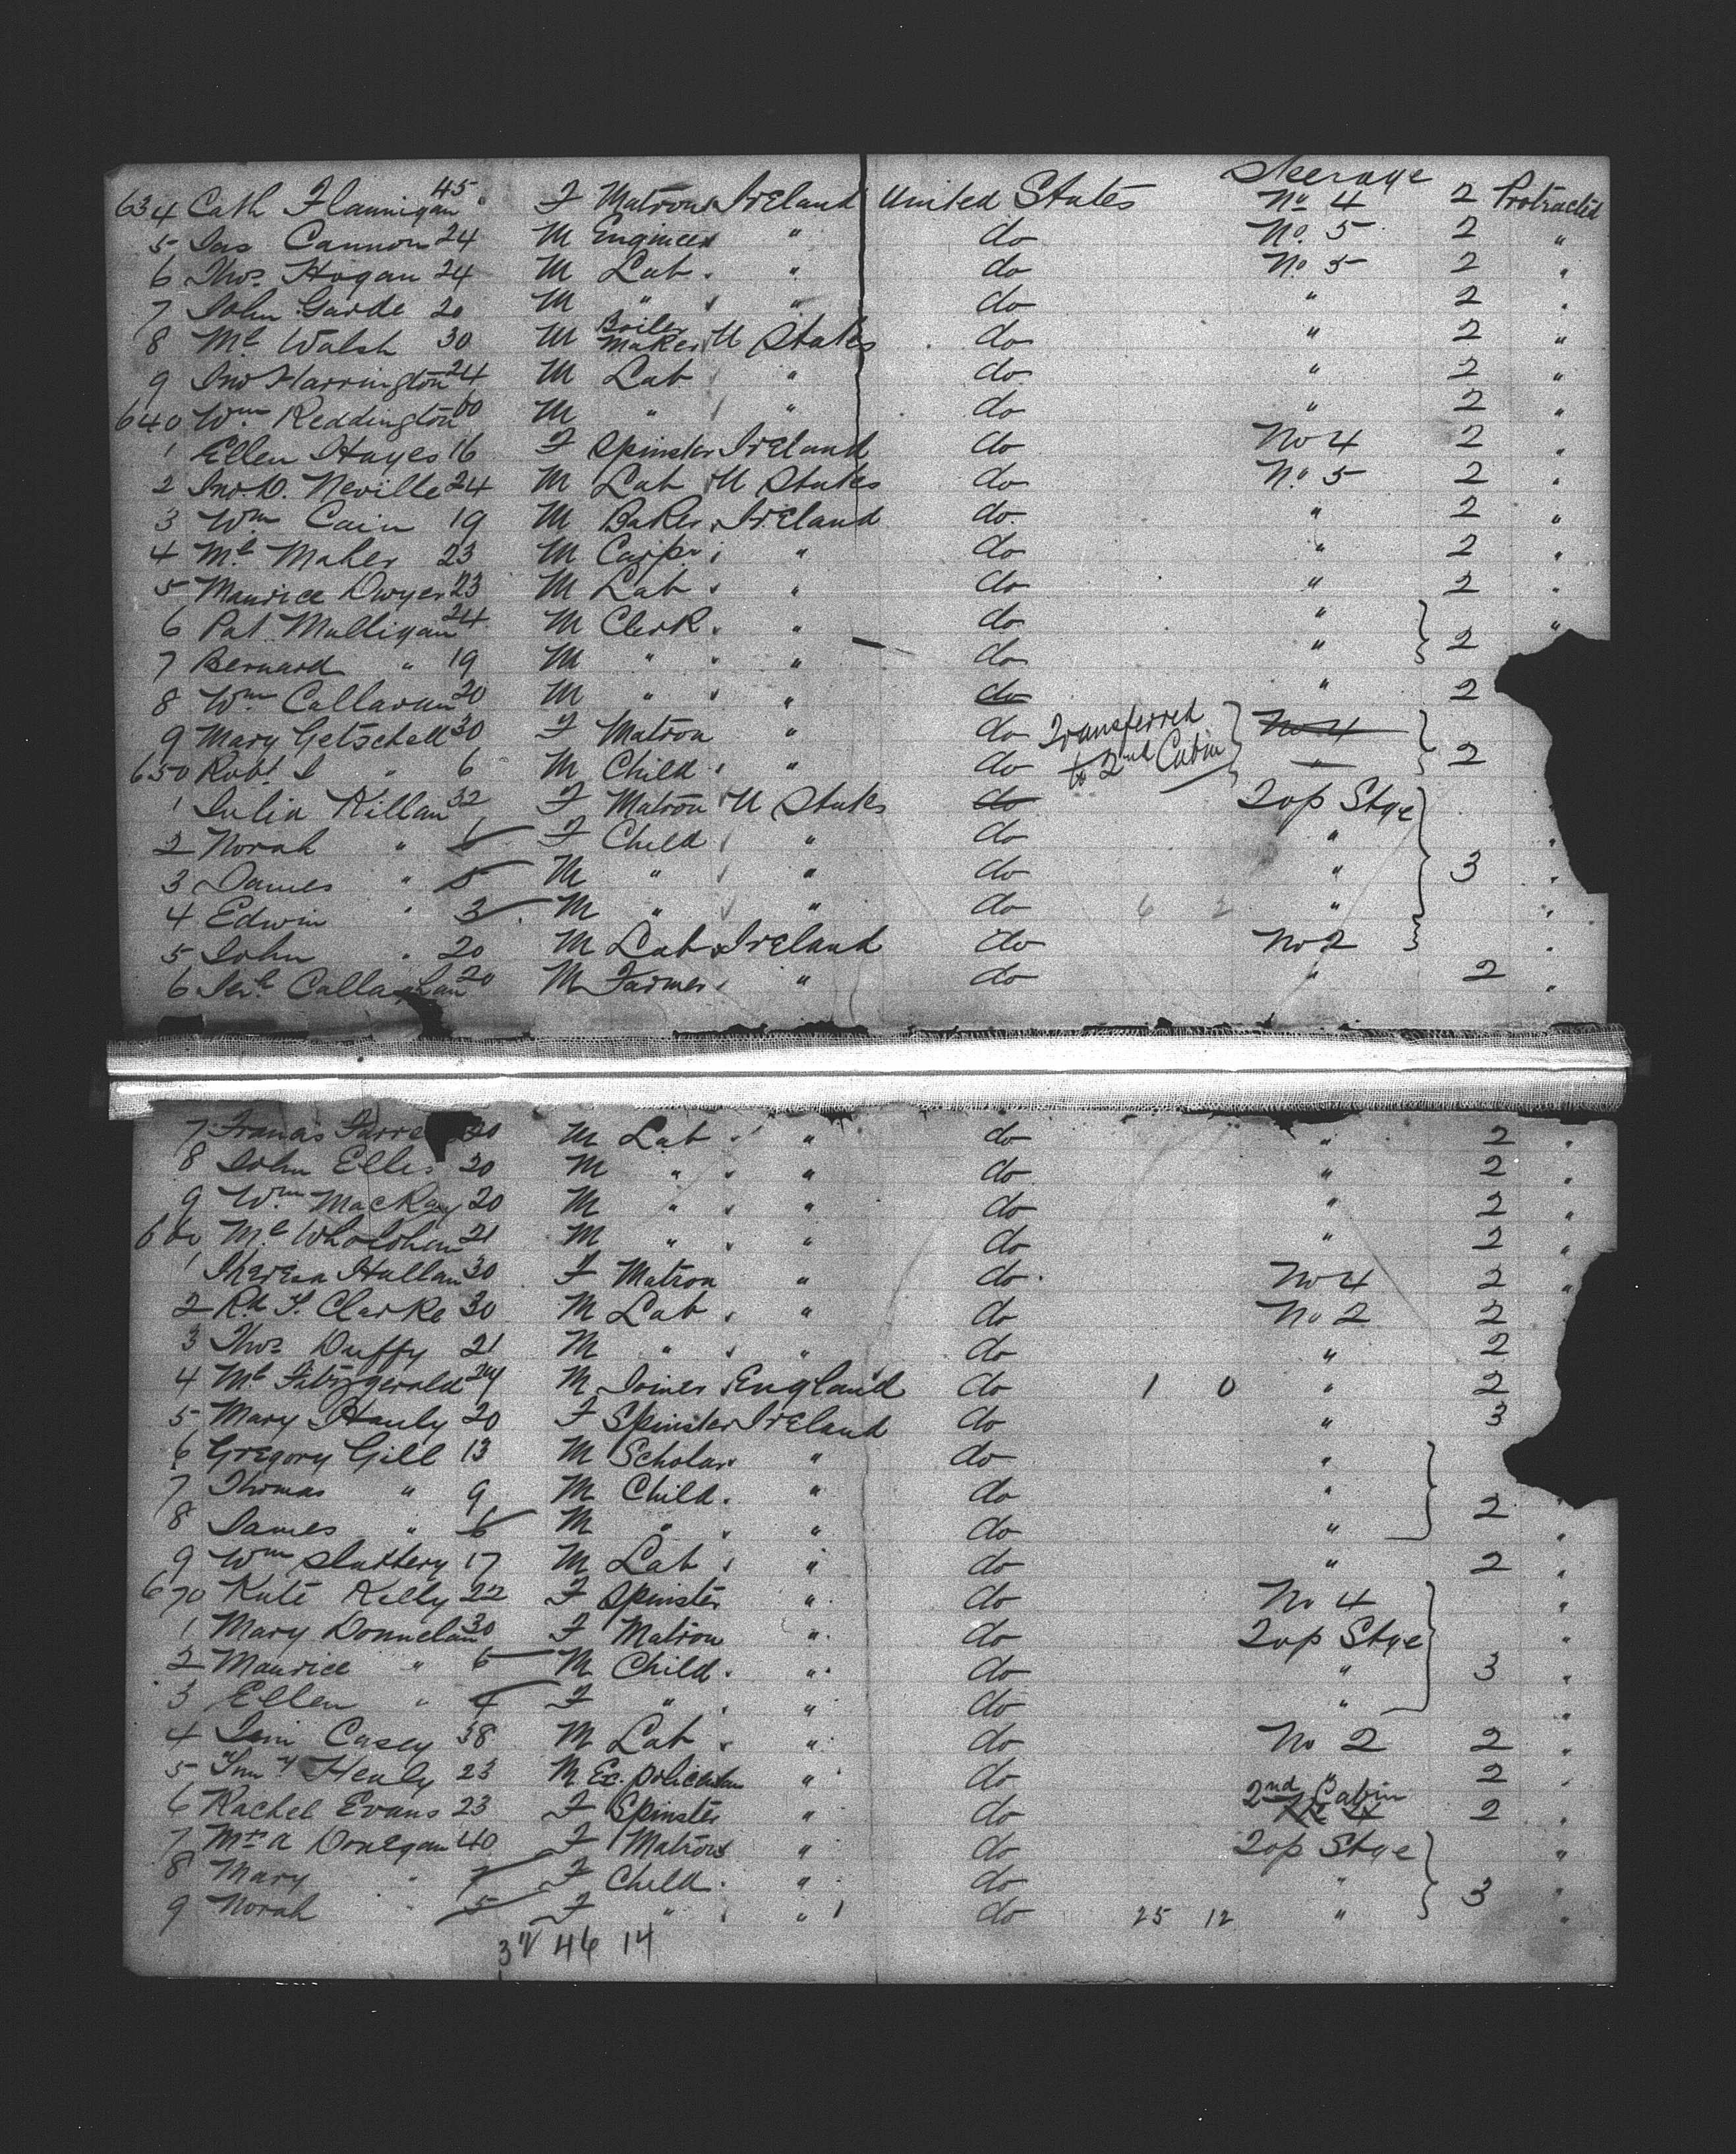 Steerage
634 Cath Flannigan 45 F Matron Ireland United States No 4 2 Protracted
5 Jas Cannon 24 M Engineer " do No. 5 2 "
6 Thos. Hogan 24 M Lab. " do No. 5 2 "
7 John Garde 20 M " " do " 2 "
8 Ml Walsh 30 M Boiler Maker U States do " 2 "
9 Jno Harrington 24 M Lab " do " 2 "
640 Wm Reddington 60 M " " do " 2 "
1 Ellen Hayes 16 F Spinster Ireland do No 4 2 "
2 Jno. D. Neville 24 M Lab U States do No. 5 2 "
3 Wm Cain 19 M Baker Ireland do " 2 "
4 Ml Maher 23 M Carpr " do " 2 "
5 Maurice Dwyer 23 M Lab " do " 2 "
6 Pat Mulligan 24 M Clerk " do " "
7 Bernard " 19 M " " do " 2
8 Wm Callanan 20 M " " do " 2
9 Mary Getschell 30 F Matron " do Transferred No 4
650 Robt J " 6 M Child " do to 2nd Cabin " 2
1 Julia Killan 32 F Matron U States do Top Stge
2 Norah " 6 F Child " do " "
3 James " 5 M " " do " 3 "
4 Edwin " 3 M " " do 6 2 " "
5 John " 20 M Lab Ireland do No 2 "
6 Jerh Callaghan 20 M Farmer " do " 2 "
7 Francis Farre 20 M Lab " do " 2 "
8 John Ellis 20 M " " do " 2 "
9 Wm MacKay 20 M " " do " 2 "
660 Ml Wholohan 21 M " " do " 2 "
1 Theresa Hallan 30 F Matron " do No 4 2 "
2 Rd F. Clarke 30 M Lab " do No 2 2
3 Thos Duffy 21 M " " do " 2
4 Ml Fitzgerald 24 M Joiner England do 1 0 " 2
5 Mary Hanly 20 F Spinster Ireland do " 3
6 Gregory Gill 13 M Scholar " do "
7 Thomas " 9 M Child " do " "
8 James " 6 M " " do " 2 "
9 Wm Slattery 17 M Lab " do " 2 "
670 Kate Kelly 22 F Spinster " do No 4 "
1 Mary Donnelan 30 F Matron " do Top Stge "
2 Maurice " 6 M Child " do " 3 "
3 Ellen " 4 F " " do " "
4 Jam Casey 38 M Lab " do No 2 2 "
5 Healy 23 M Ex. policeman " do " 2 "
6 Rachel Evans 23 F Spinster " do 2nd Cabin 2 "
7 Mrs A Donegan 40 F Matron " do Top Stge "
8 Mary " 7 F Child " do " 3 "
9 Norah " 5 F " " do 25 12 " "
46 14